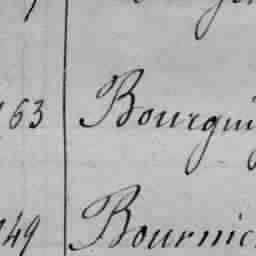 163 Bourgui
149 Bournic